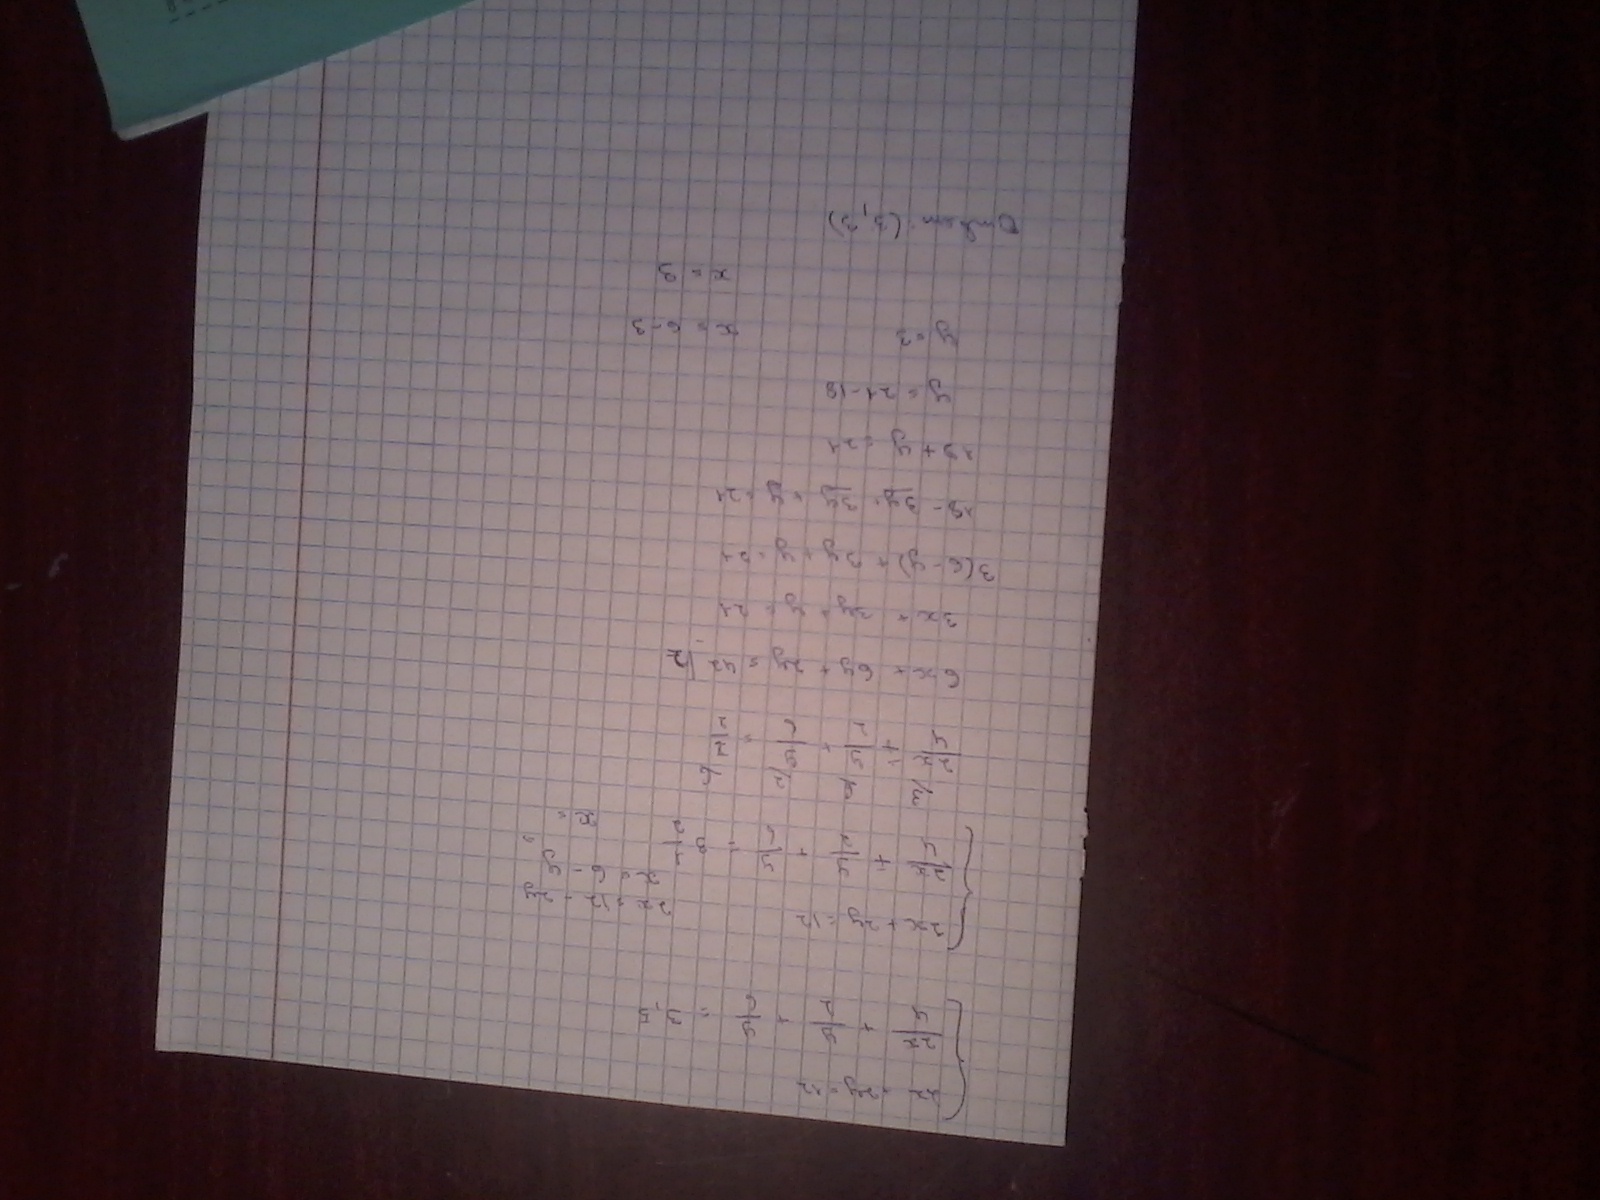 2x + 2y = 12
2x/4 + y/2 + y/6 = 3,5
2x + 2y = 12
2x = 12 - 2y
x = 6 - y
2x/4 + y/2 + y/6 = 3 1/2
x =
6x + 6y + 2y = 42 |2
3x + 3y + y = 21
3(6 - y) + 3y + y = 21
18 - 3y + 3y + y = 21
18 + y = 21
y = 21 - 18
y = 3
x = 6 - 3
x = 3
Ответ: (3, 3)